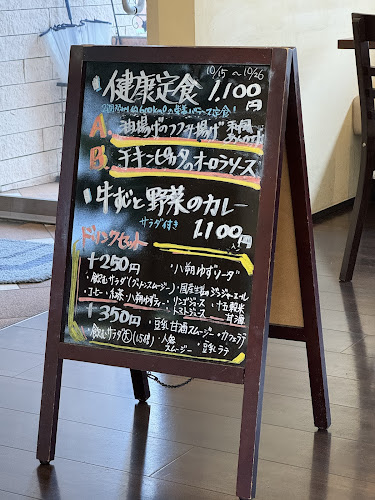 健康定食 1,100円
10/15 〜 10/26
A. 油揚げの
B. チキンピカタのオーロラソース
牛すじと野菜のカレー
サラダ付き 1,100円
ドリンクセット
+250円
・八朔ゆずソーダ
・飲むサラダ(グリーンスムージー)・国産生姜のジンジャーエール
・コーヒー・紅茶・八朔ゆずティー・リンゴジュース・十五穀米甘酒
トマトジュース
+350円
・豆乳甘酒スムージー・カフェラテ
・飲むサラダ大(1.5倍)・人参スムージー・豆乳ラテ